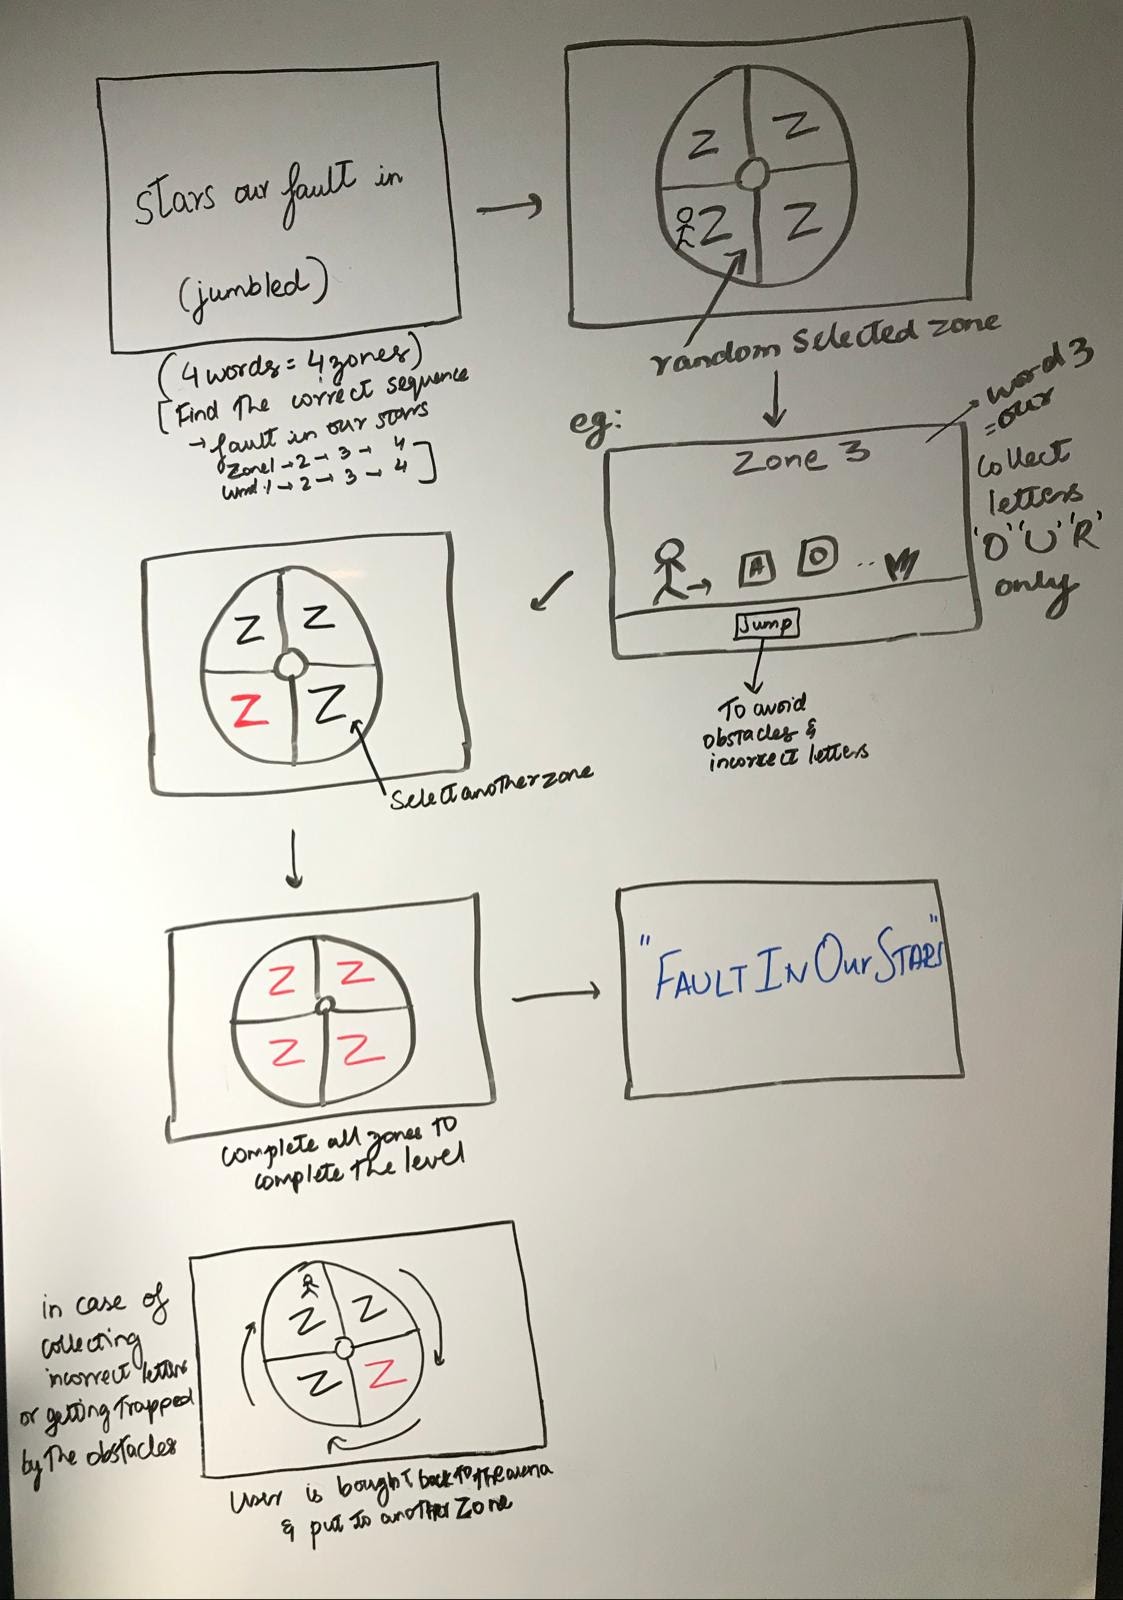 stars our fault in
(jumbled)
(4 words = 4 zones)
[Find the correct sequence
→ fault in our stars
Zone1 → 2 → 3 → 4
Word 1 → 2 → 3 → 4]
Z Z
Z Z
random selected zone
eg:
Zone 3
word 3
= our
collect
letters
'O' 'U' 'R'
only
A O ..
Jump
To avoid
obstacles &
incorrect letters
Z Z
Z Z
Select another zone
Z Z
Z Z
complete all zones to
complete the level
"FAULT IN Our STARS"
in case of
collecting
incorrect letters
or getting trapped
by the obstacles
Z Z
Z Z
User is bought back to the arena
& put to another zone